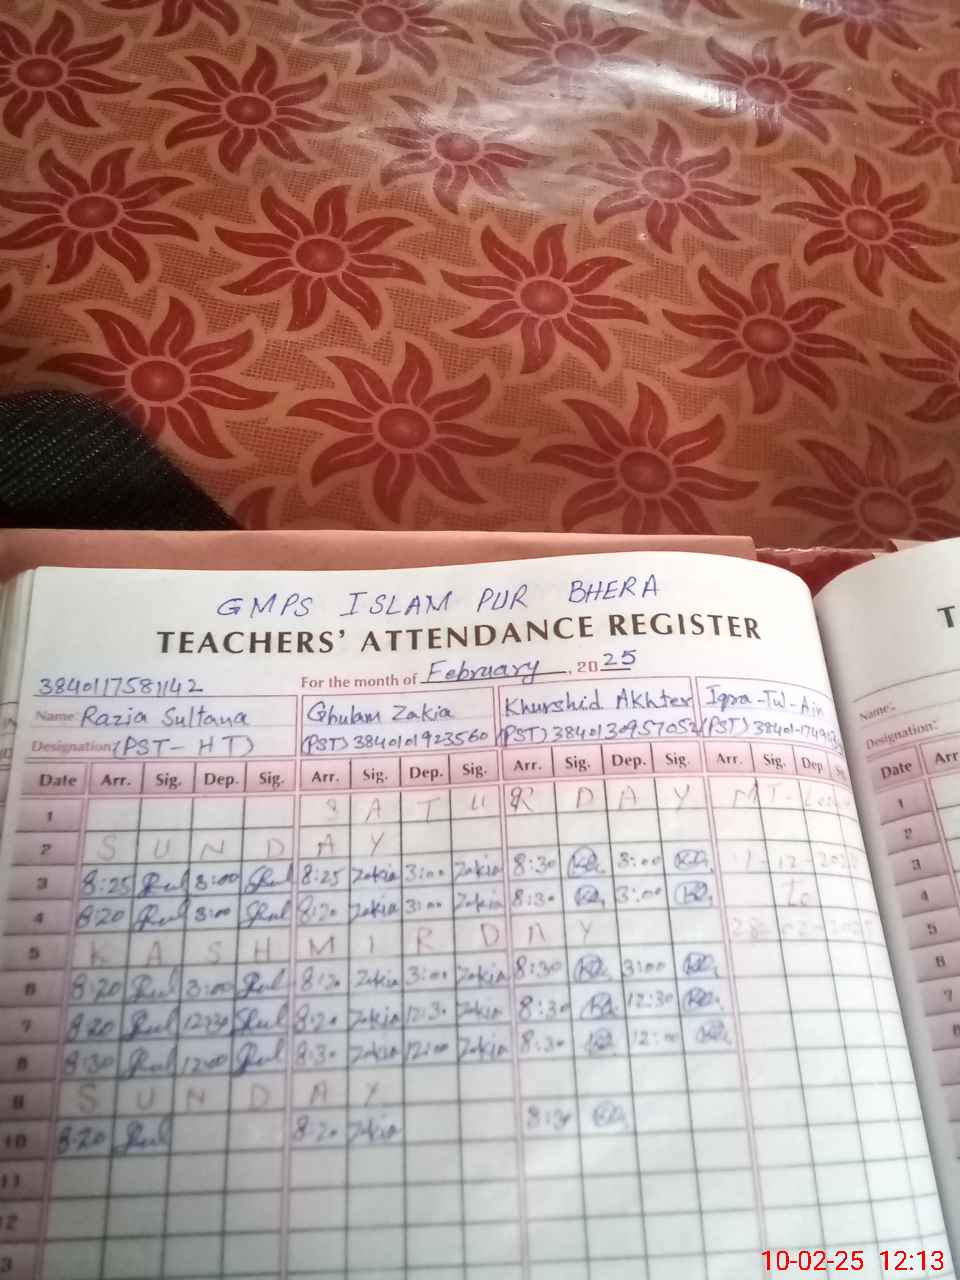 GMPS ISLAM PUR BHERA
TEACHERS' ATTENDANCE REGISTER
For the month of February, 2025
3840117581142
Name: Razia Sultana Ghulam Zakia Khurshid Akhter Iqra-Tul-Ain
Designation: (PST-HT) (PST) 3840101923560 (PST) 3840130957052 (PST) 38401-1749
Date Arr. Sig. Dep. Sig. Arr. Sig. Dep. Sig. Arr. Sig. Dep. Sig. Arr. Sig. Dep
1 SATURDAY
2 SUNDAY
3 8:25 3:00 8:25 Zakia 3:00 Zakia 8:30 3:00
4 8:20 3:00 8:20 Zakia 3:00 Zakia 8:30 3:00 To
5 KASHMIR DAY
6 8:20 3:00 8:20 Zakia 3:00 Zakia 8:30 3:00
7 8:20 12:30 8:20 Zakia 12:30 Zakia 8:30 12:30
8 8:30 12:00 8:30 Zakia 12:00 Zakia 8:30 12:00
9 SUNDAY
10 8:20 8:20 Zakia 8:30
11
12
3
T
Name:-
Designation:-
Date Arr
1
2
3
4
5
6
7
8
10-02-25 12:13